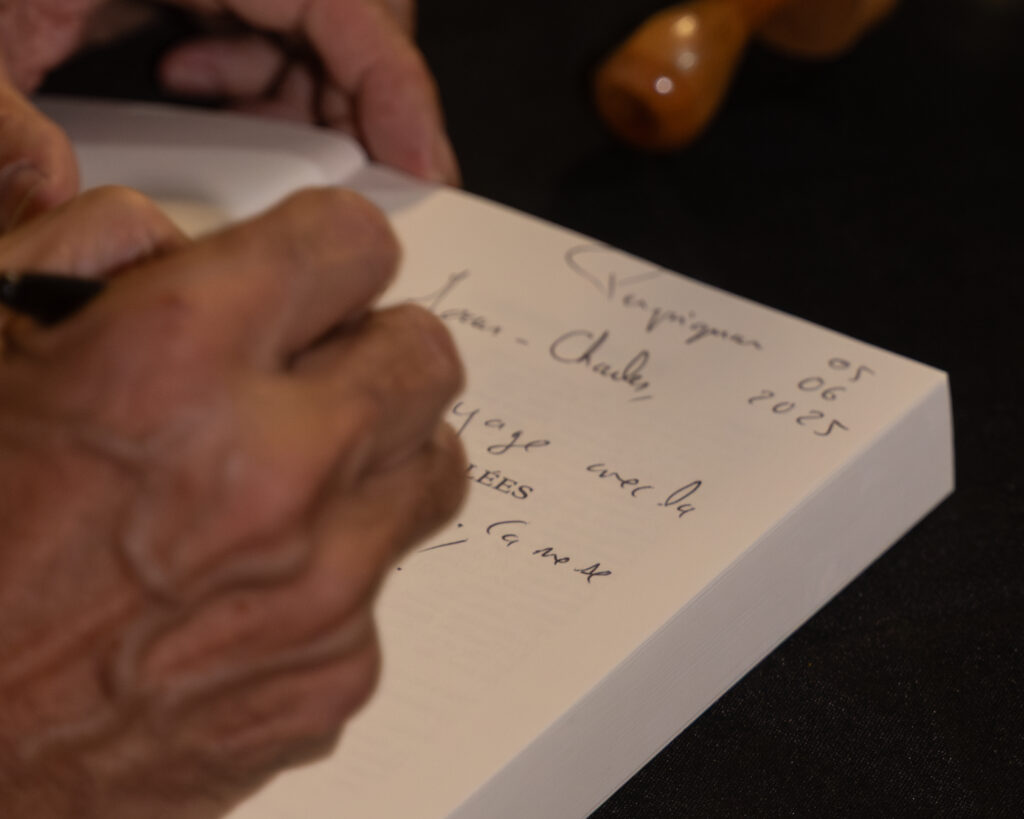 Perpignan
05
06
2025
Jean-Charles,
yage avec la
LÉES
; Ça ne se